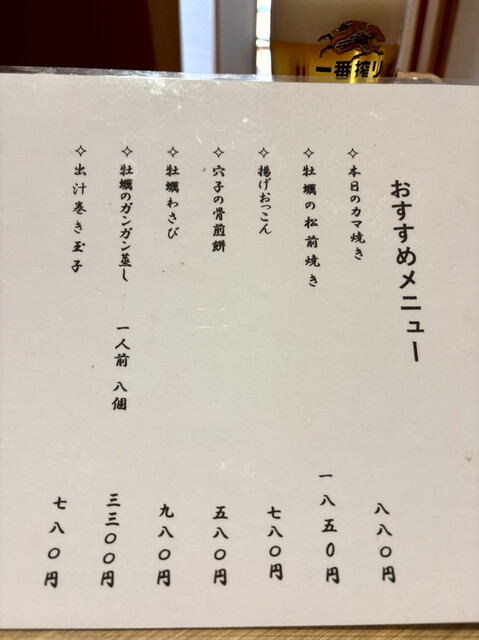 一番搾り
おすすめメニュー
✧本日のカマ焼き 八八〇円
✧牡蠣の松前焼き 一八五〇円
✧揚げおっこん 七八〇円
✧穴子の骨煎餅 五八〇円
✧牡蠣わさび 九八〇円
✧牡蠣のガンガン蒸し 一人前 八個 三三〇〇円
✧出汁巻き玉子 七八〇円